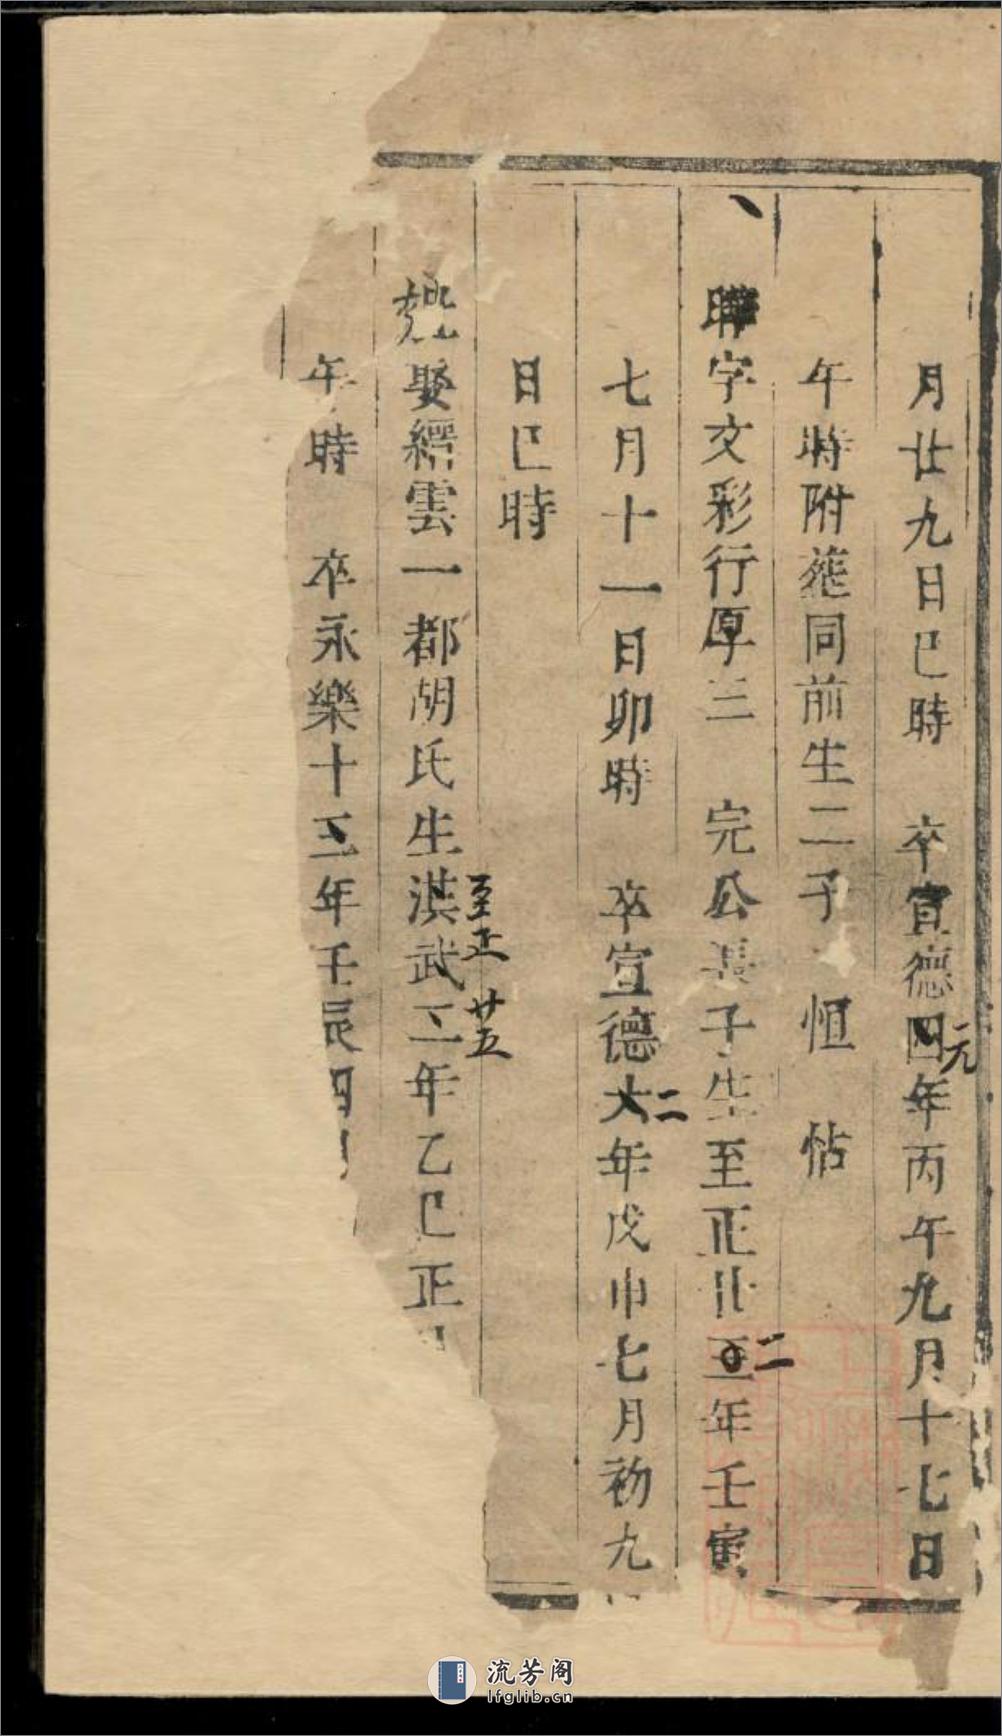 月廿九日巳時 卒宣德四年丙午九月十七日
元
午時附葬同前生二子 恒 怙
字文彩行厚三 完公長子生至正廿五年壬寅
二
七月十一日卯時 卒宣德六年戊申七月初九
二
日巳時
娶縉雲一都胡氏生洪武二年乙巳正
至正廿五
午時 卒永樂十三年壬辰四
流芳阁
lfglib.cn